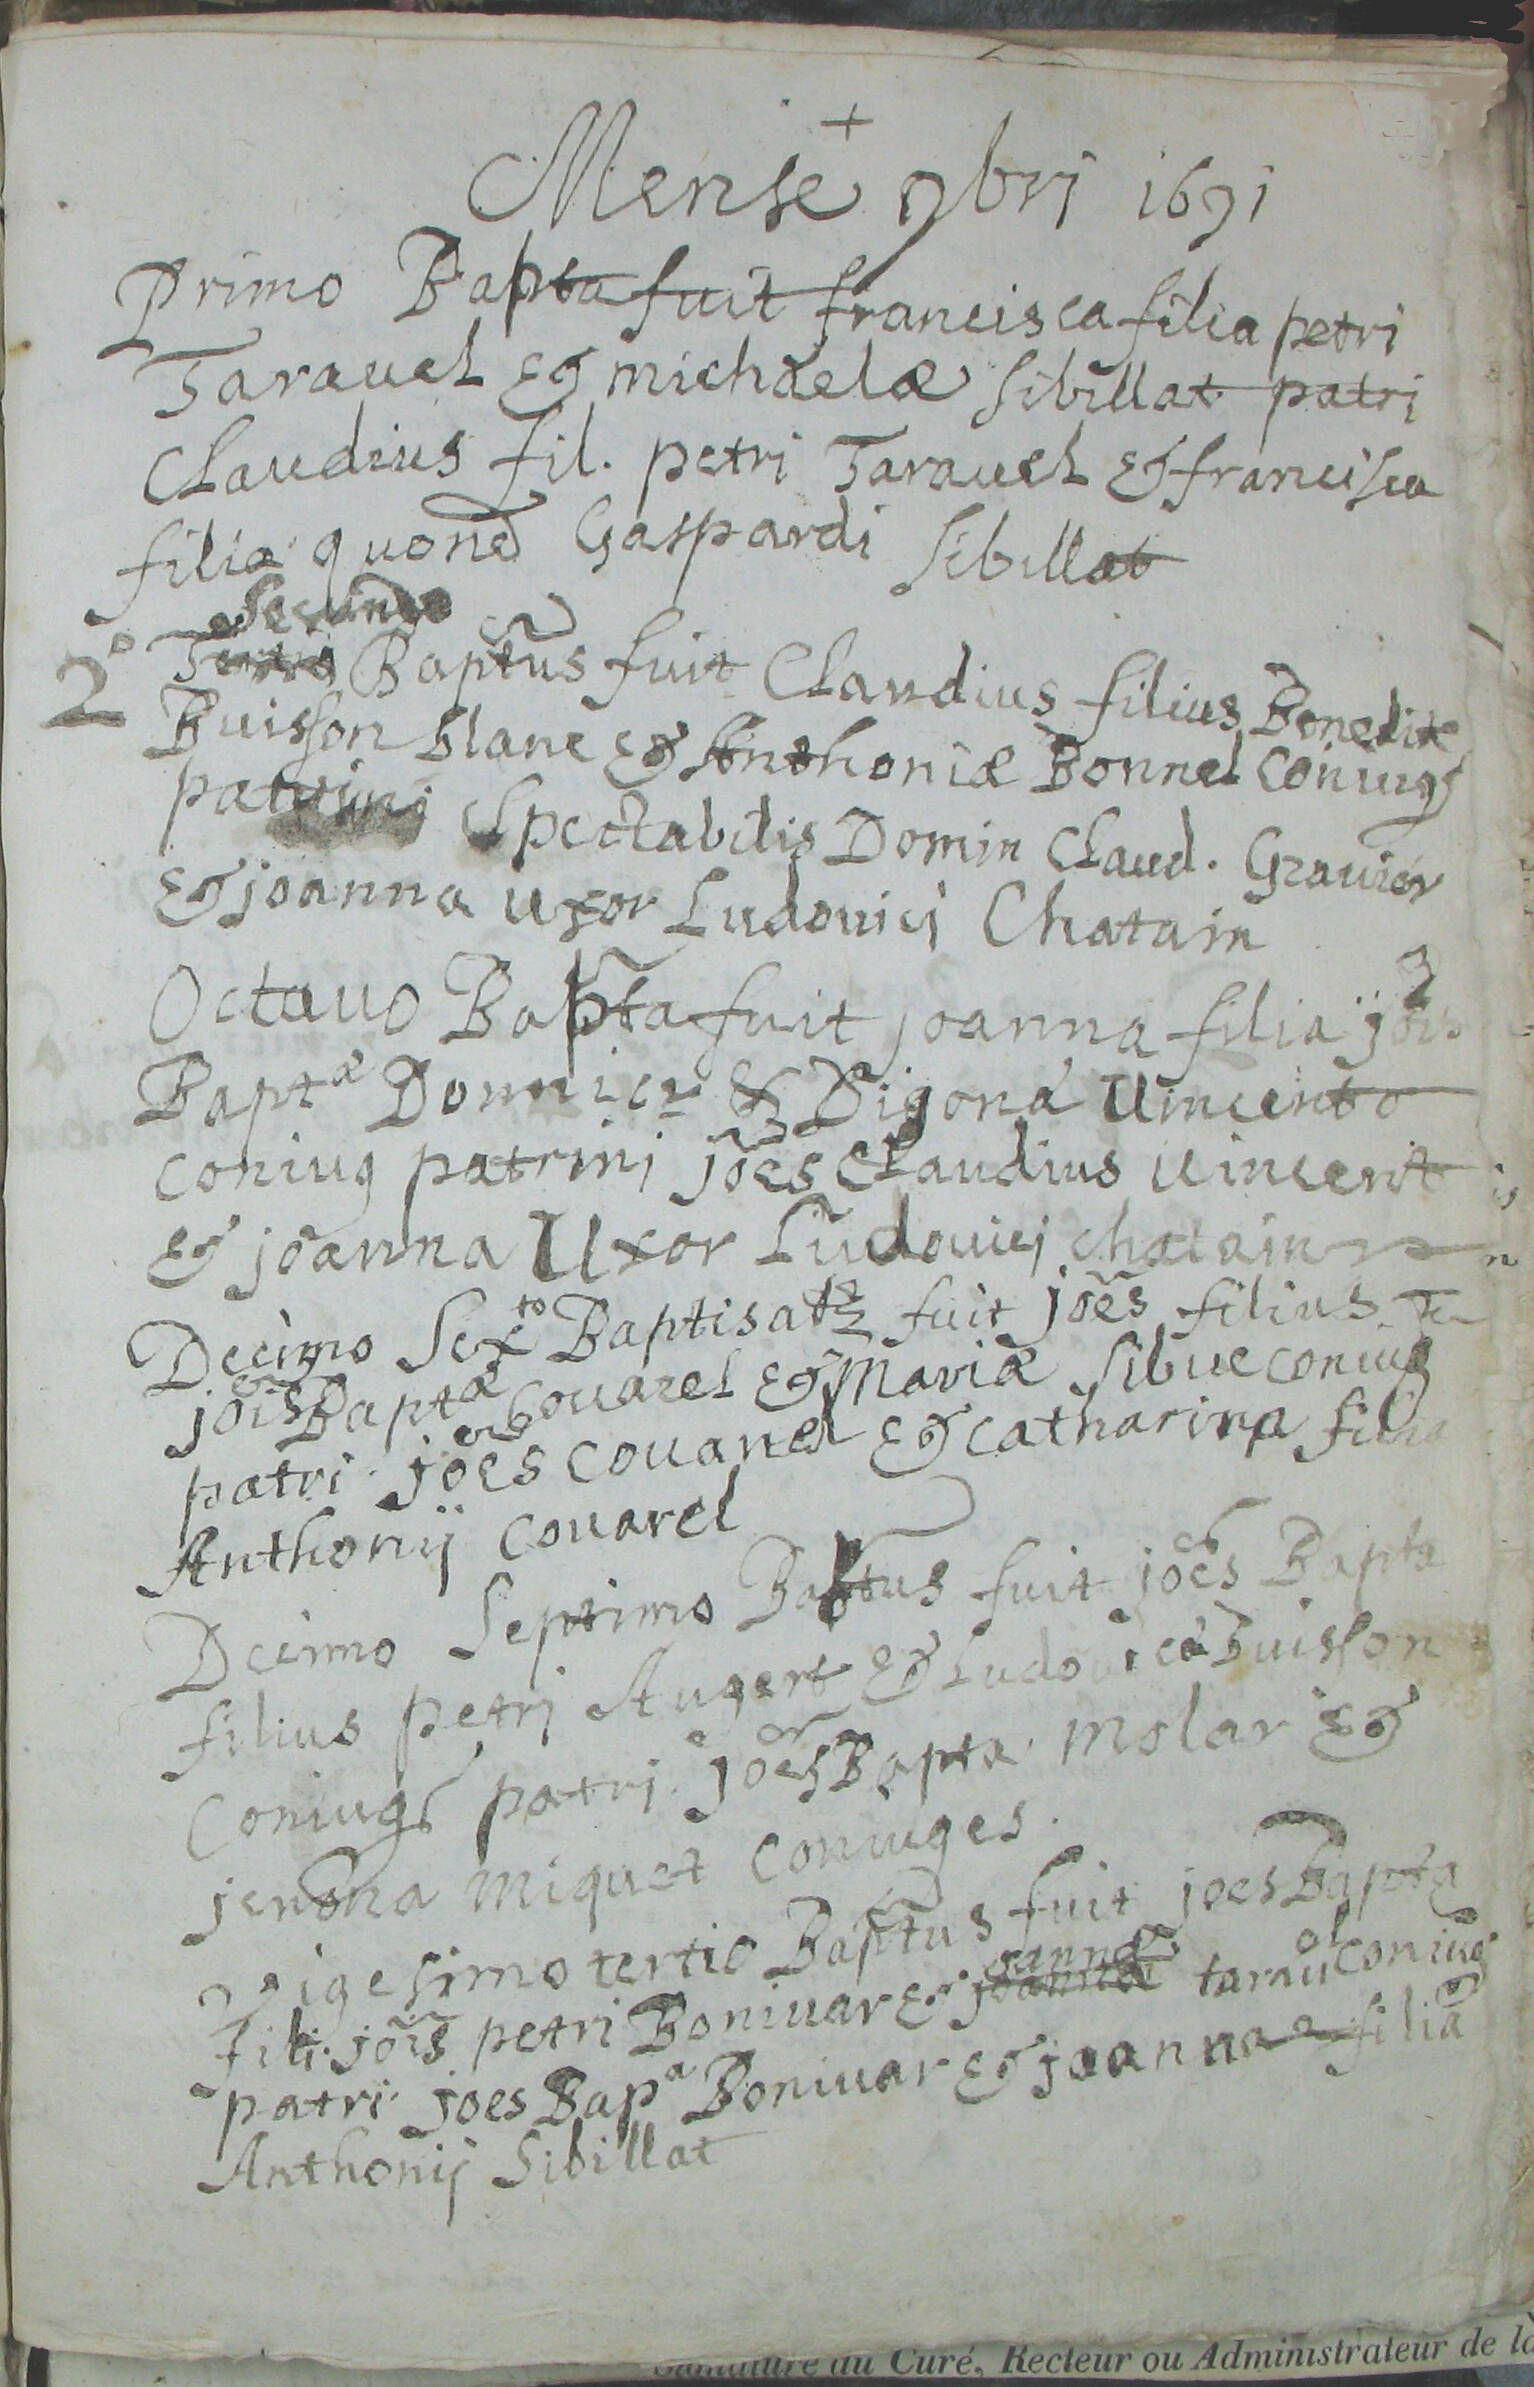 +
Mense 9brj 1691
Primo Bapta fuit francisca filia petri
Tarauel Eg michaelæ Sibillat patri
Claudius fil. petri Tarauel Eg francisca
filia quond Gaspardi Sibillat
Secundo
2° Baptus fuit Claudius filius Benedite
Buisson blanc Eg Anthoniæ Bonnel Coniug
patrini Spectabilis Domin Claud. Grauier
Eg joanna uxor Ludouici Chatain
Octauo Bapta fuit joanna filia jois
Baptæ & Vincento
coniug patrinj joes Claudius Vincent
Eg joanna Uxor Ludouicj chatain
Decimo Sexto Baptisat9 fuit joes filius
jois Baptæ Couarel Eg Mariæ Sibue coniug
patri. joes couarel Eg catharina filia
Anthonij couarel
Decimo Septimo Baptus fuit joes Bapta
filius petrj Augert Eg Ludouicæ Buisson
Coniug patrj. joes Bapta molar Eg
jenona miquet coniuges.
Vigesimo tertio Baptus fuit joes Bapta
fili. jois petri Boniuar Eg tarauel coniug
patri. joes Bapa Boniuar Eg joanna filia
Anthonij Sibillat
Signature du Curé, Recteur ou Administrateur de la